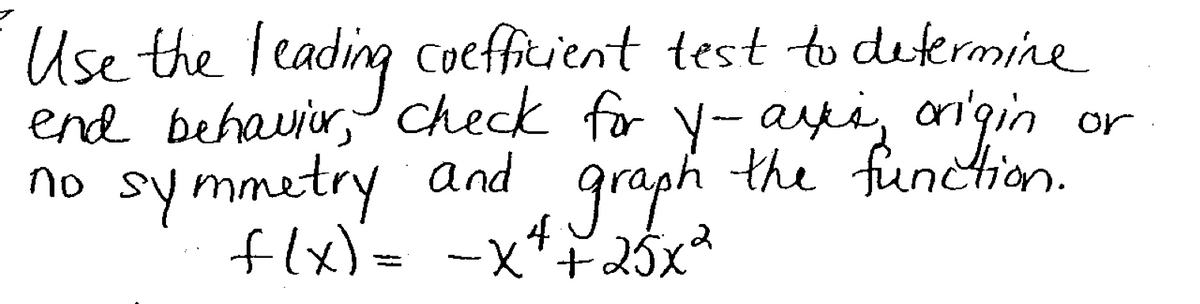 Use the leading coefficient test to determine
end behavior, check for y-axis, origin or
no symmetry and graph the function.
f(x) = -x⁴ + 25x²